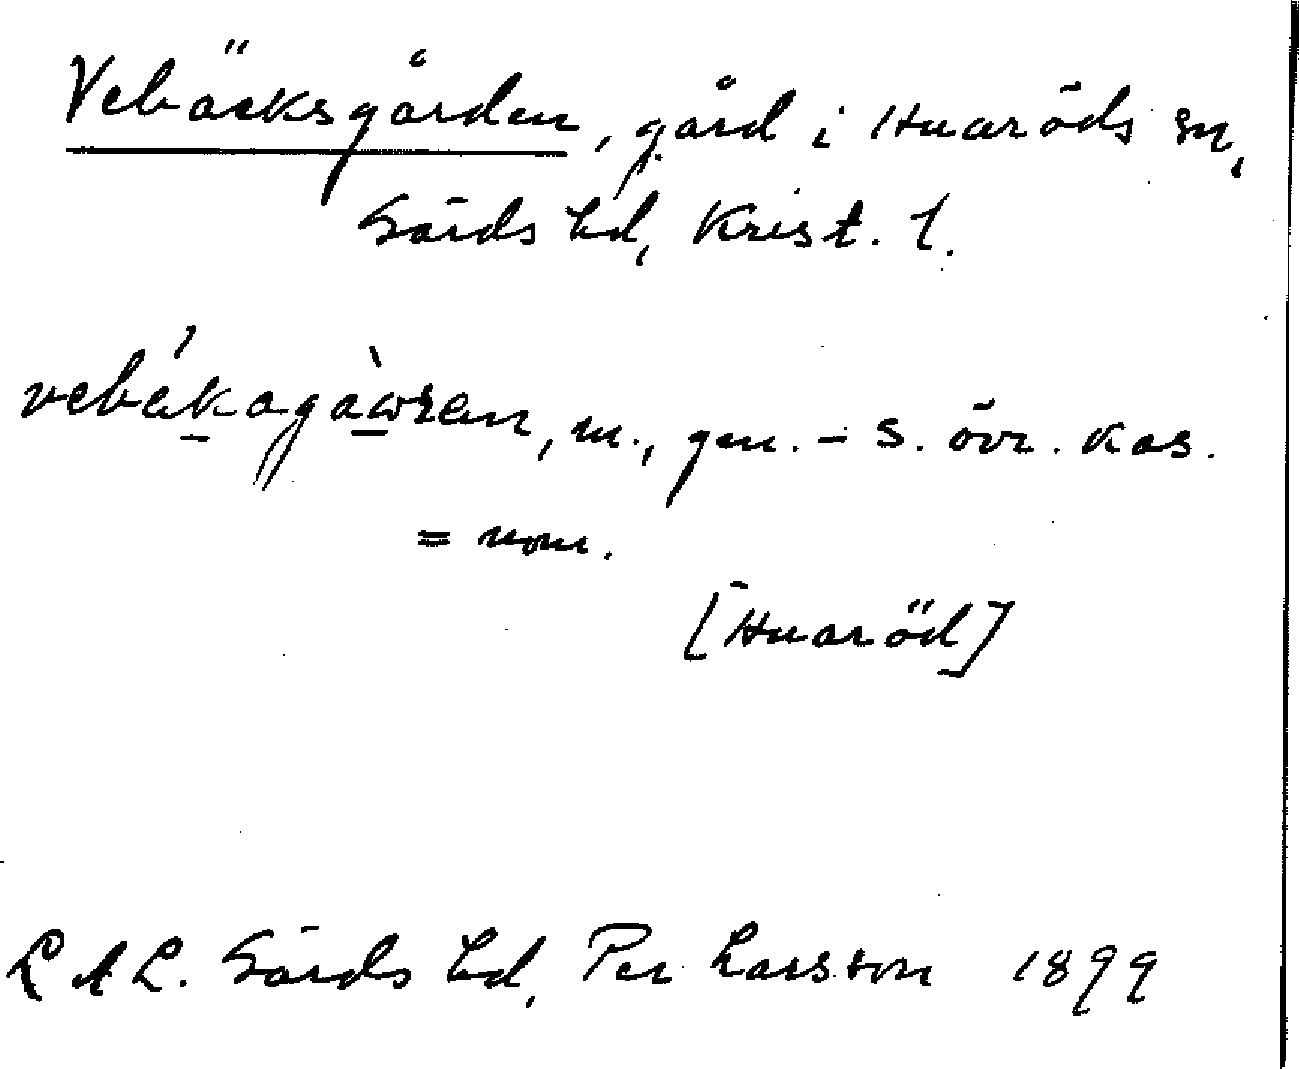 Vebäcksgården, gård i Huaröds sn,
Gärds hd, Krist. l.
vebákagàωren, m., gen. - s. övr. kas.
= nom.
[Huaröd]
LAL. Gärds hd, Per Larsson 1899